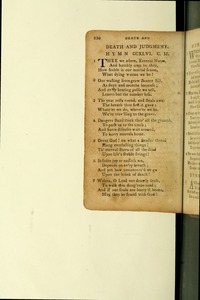 DEATH AND
DEATH AND JUDGMENT.
HYMN CCXLVI. C. M.
1 THEE we adore, Eternal Name,
And humbly own to thee,
How feeble is our mortal frame,
What dying worms we be!
2 Our wasting lives grow shorter still,
As days and months increase;
And every beating pulse we tell,
Leaves but the number less.
3 The year rolls round, and steals away
The breath that first it gave;
Whate'er we do, where'er we be,
We're trav'lling to the grave.
4 Dangers stand thick thro' all the ground,
To push us to the tomb;
And fierce diseases wait around,
To hurry mortals home.
5 Great God! on what a slender thread
Hang everlasting things!
Th' eternal states of all the dead
Upon life's feeble strings!
6 Infinite joy or endless woe,
Depends on ev'ry breath;
And yet how unconcern'd we go
Upon the brink of death!
7 Waken, O Lord our drowsy sense,
To walk this dang'rous road;
And if our souls are hurry'd hence,
May they be found with God!